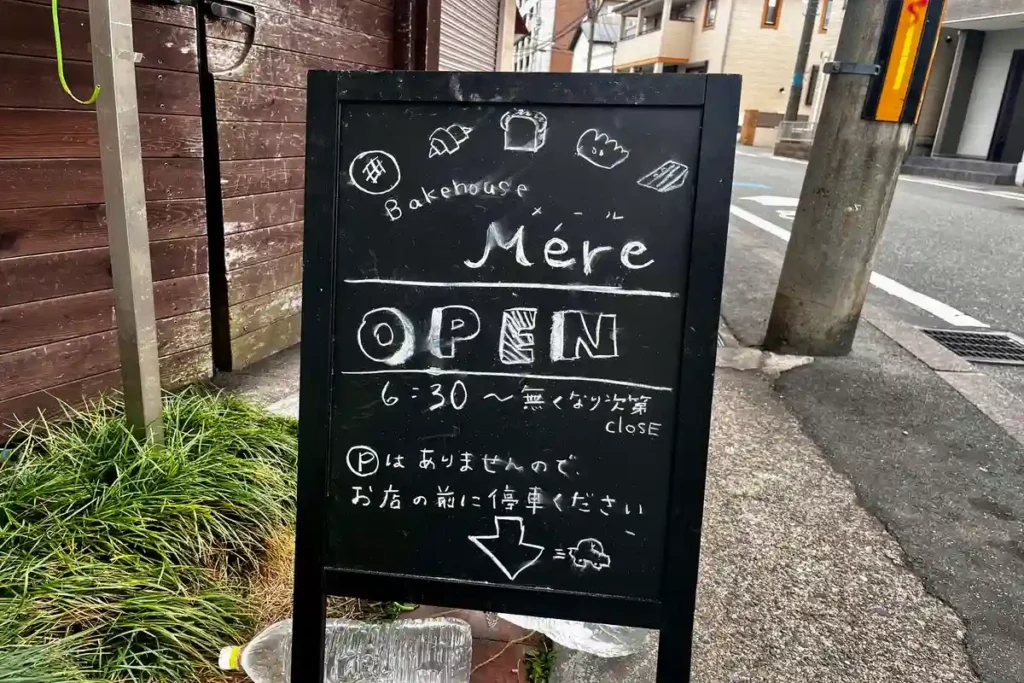 Bakehouse
メール
Mére
OPEN
6:30～無くなり次第
CLOSE
Ⓟはありませんので、
お店の前に停車ください